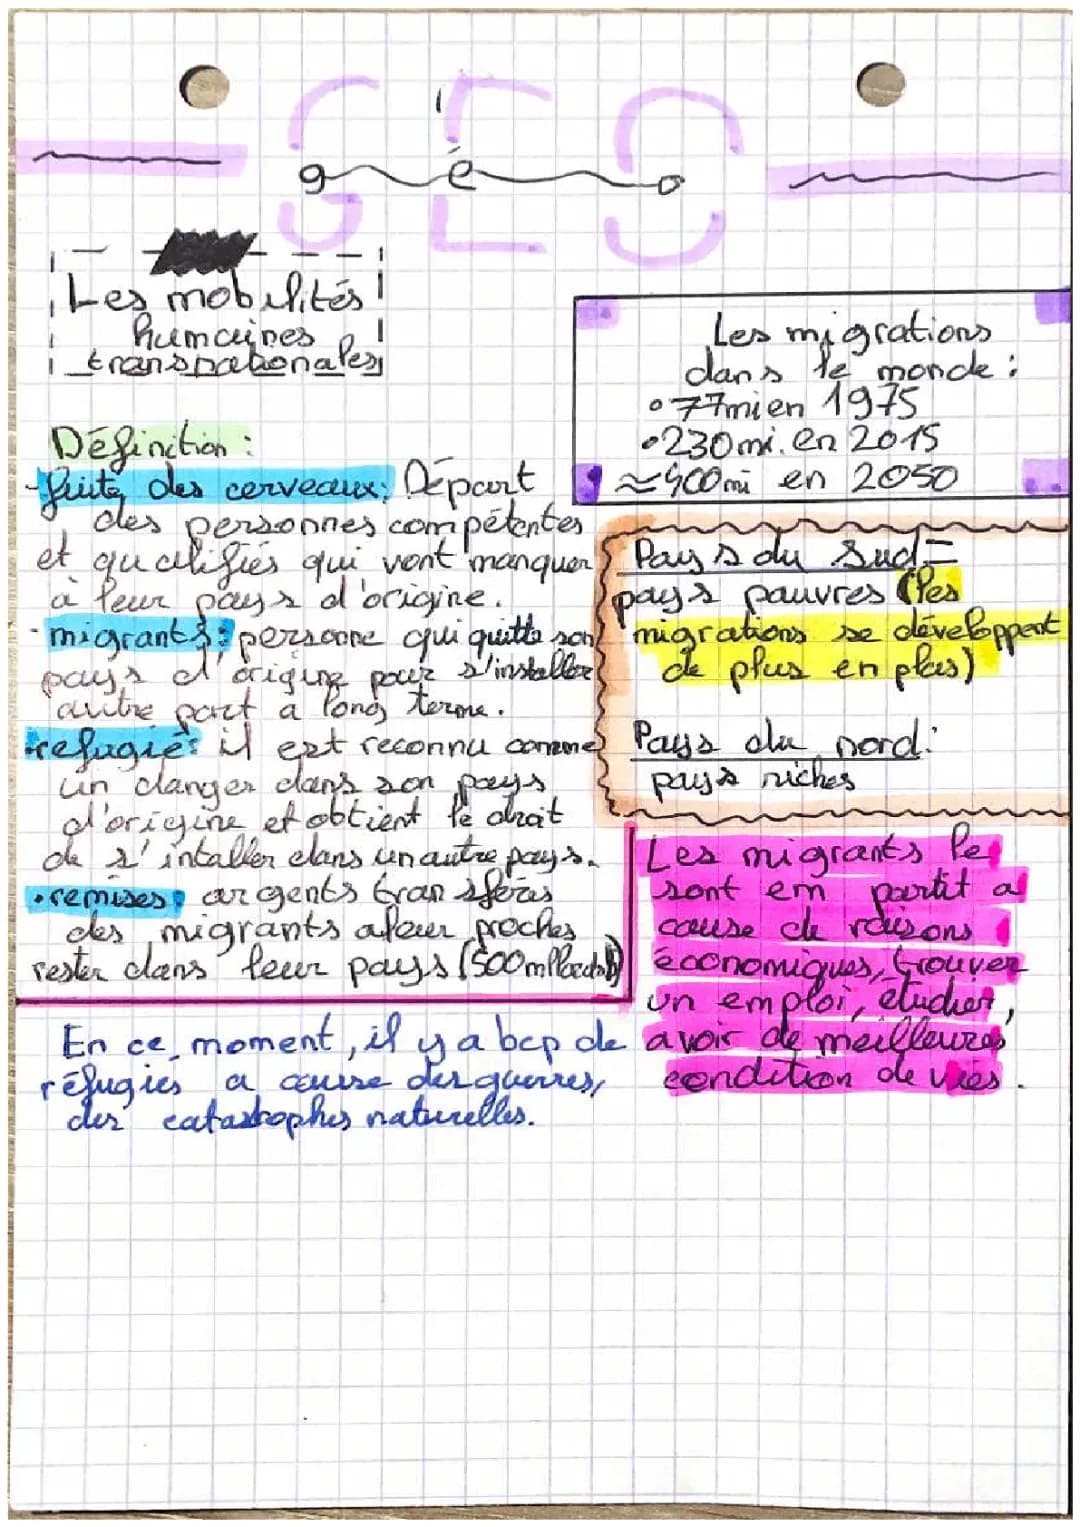 GEO
géo
Les mobilités
humaines
transnationales
Les migrations
dans le monde :
•77mi en 1975
•230mi. en 2015
≈400mi en 2050
Définition :
-fuite des cerveaux: Départ
des personnes compétentes
et qualifiés qui vont manquer
à leur pays d'origine.
·migrants: personne qui quitte son
pays d'origine pour s'installer
autre part a long terme.
·refugié: il est reconnu comme
un danger dans son pays
d'origine et obtient le droit
de s'intaller dans un autre pays.
•remises: argents transféras
des migrants a leur proches
rester dans leur pays (500m
Pays du Sud=
pays pauvres (les
migrations se développent
de plus en plus)
Pays du nord:
pays riches
Les migrants le
sont em partit a
cause de raisons
économiques, trouver
un emploi, étudier,
avoir de meilleures
condition de vies.
En ce moment, il y a bcp de
réfugiés a cause des guerres,
des catastrophes naturelles.